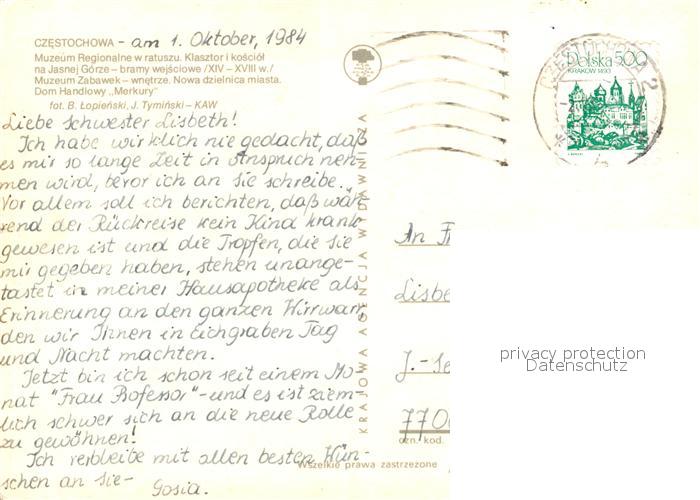 CZĘSTOCHOWA - am 1. Oktober, 1984
Muzeum Regionalne w ratuszu. Klasztor i kościół
na Jasnej Górze – bramy wejściowe /XIV – XVIII w./
Muzeum Zabawek – wnętrze. Nowa dzielnica miasta.
Dom Handlowy „Merkury”
fot. B. Łopieński, J. Tymiński – KAW
Liebe Schwester Lisbeth!
Ich habe wirklich nie gedacht, daß
es mir so lange Zeit in Anspruch neh-
men wird, bevor ich an sie schreibe.
Vor allem soll ich berichten, daß wäh-
rend der Rückreise kein Kind krank
gewesen ist und die Tropfen, die sie
mir gegeben haben, stehen unange-
tastet in meiner Hausapotheke als
Erinnerung an den ganzen Wirrwarr,
den wir Ihnen in Eichgraben Tag
und Nacht machten.
Jetzt bin ich schon seit einem Mo-
nat "Frau Professor" - und es ist ziem-
lich schwer sich an die neue Rolle
zu gewöhnen!
Ich verbleibe mit allen besten Wün-
schen an sie-
Gosia.
KRAJOWA AGENCJA WYDAWNICZA
Polska 500
KRAKÓW 1493
CZĘSTOCHOWA 2
An Fr
Lisbe
J.-Se
770
ozn. kod.
Wszelkie prawa zastrzeżone
privacy protection
Datenschutz